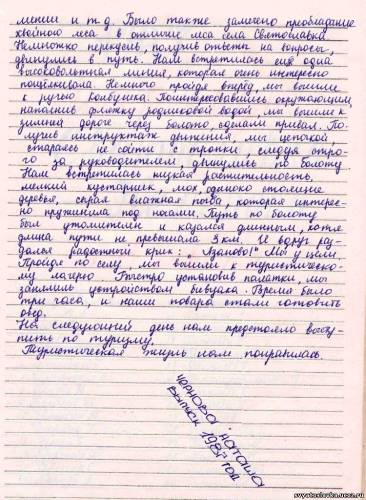 мении и т.д. Было также замечено преобладание
хвойного леса в отличие леса села Святославка.
Немножко перекусив, получив ответы на вопросы,
двинулись в путь. Нам встретилась ещё одна
высоковольтная линия, которая очень интересно
пощёлкивала. Немного пройдя вперёд, мы вышли
к ручью Колбушка. Поинтересовавшись окружающим,
наполнив фляжку родниковой водой мы вышли к
зимней дороге через болото, сделали привал. По-
лучив инструктаж движения, мы цепочкой,
стараясь не сойти с тропки, следуя стро-
го за руководителем, двинулись по болоту.
Нам встретилась низкая растительность,
мелкий кустарник, мох, одиноко стоящие
деревья, сырая влажная почва, которая интерес-
но пружинила под ногами. Путь по болоту
был утомителен и казался длинным, хотя
длина пути не превышала 3 км. И вдруг раз-
дался радостный крик: „Изаново!" Мы у цели.
Пройдя по селу, мы вышли к туристическо-
му лагерю. Быстро установив палатки, мы
занялись устройством бивуака. Время было
три часа, и наши повара стали готовить
обед.
На следующий день нам предстояло высту-
пить по туризму.
Туристическая жизнь нам понравилась.
Чернова Наташа
выпуск 1987 год
svyatoslavka.ucoz.ru